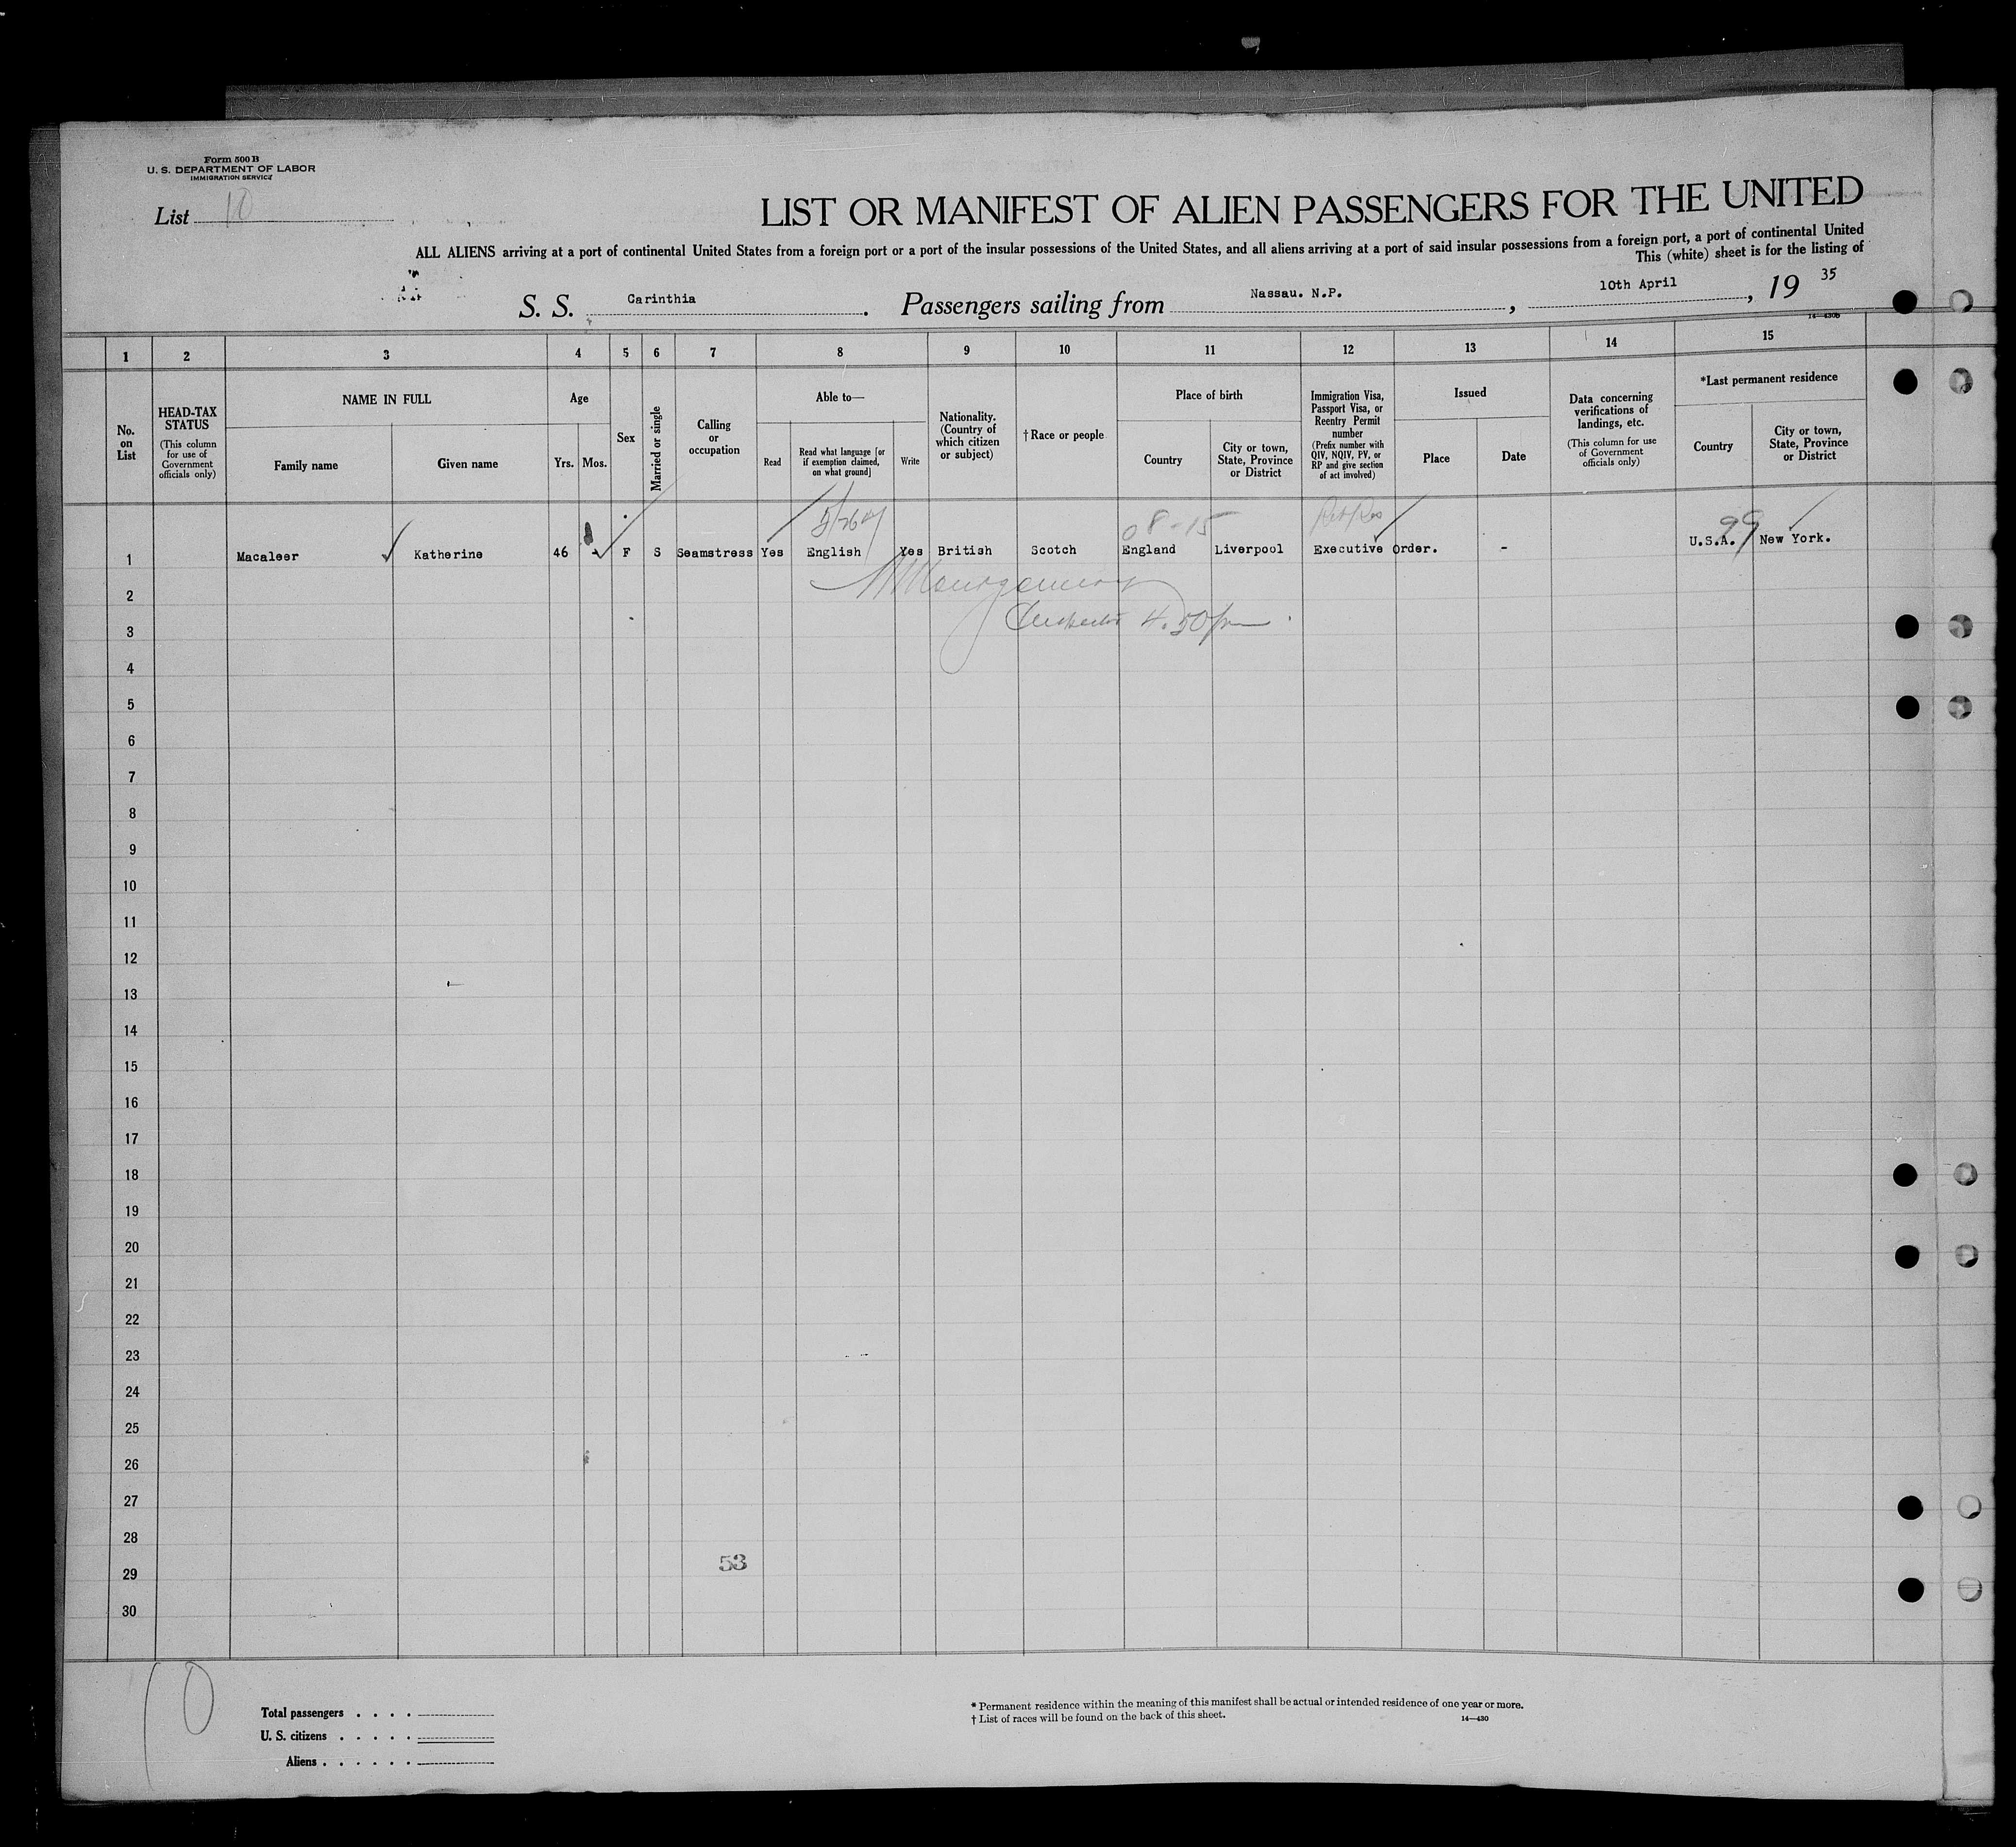 Form 500 B
U. S. DEPARTMENT OF LABOR
IMMIGRATION SERVICE
List 10
LIST OR MANIFEST OF ALIEN PASSENGERS FOR THE UNITED
ALL ALIENS arriving at a port of continental United States from a foreign port or a port of the insular possessions of the United States, and all aliens arriving at a port of said insular possessions from a foreign port, a port of continental United
This (white) sheet is for the listing of
S. S. Carinthia. Passengers sailing from Nassau. N.P., 10th April, 19 35
14—430b
1 2 3 4 5 6 7 8 9 10 11 12 13 14 15
No. on List
HEAD-TAX STATUS
(This column for use of Government officials only)
NAME IN FULL
Family name
Given name
Age
Yrs. Mos.
Sex
Married or single
Calling or occupation
Able to—
Read
Read what language [or if exemption claimed, on what ground]
Write
Nationality. (Country of which citizen or subject)
†Race or people
Place of birth
Country
City or town, State, Province or District
Immigration Visa, Passport Visa, or Reentry Permit number
(Prefix number with QIV, NQIV, PV, or RP and give section of act involved)
Issued
Place
Date
Data concerning verifications of landings, etc.
(This column for use of Government officials only)
*Last permanent residence
Country
City or town, State, Province or District
08-15
99
1 Macaleer Katherine 46 - F S Seamstress Yes English Yes British Scotch England Liverpool Executive Order. - U.S.A. New York.
Montgomery
2
Inspector 4.50 pm
3
4
5
6
7
8
9
10
11
12
13
14
15
16
17
18
19
20
21
22
23
24
25
26
27
28
53
29
30
10
Total passengers . . . .
U. S. citizens . . . . .
Aliens . . . . . .
* Permanent residence within the meaning of this manifest shall be actual or intended residence of one year or more.
† List of races will be found on the back of this sheet.
14—430